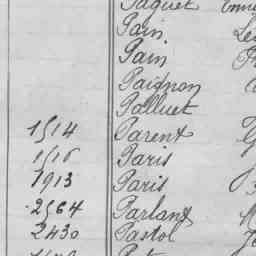 Paquet
Pain
Pain
Paignon
Palluet
1514 Parent
1516 Paris
1913 Paris
2564 Parlant
2430 Pastol